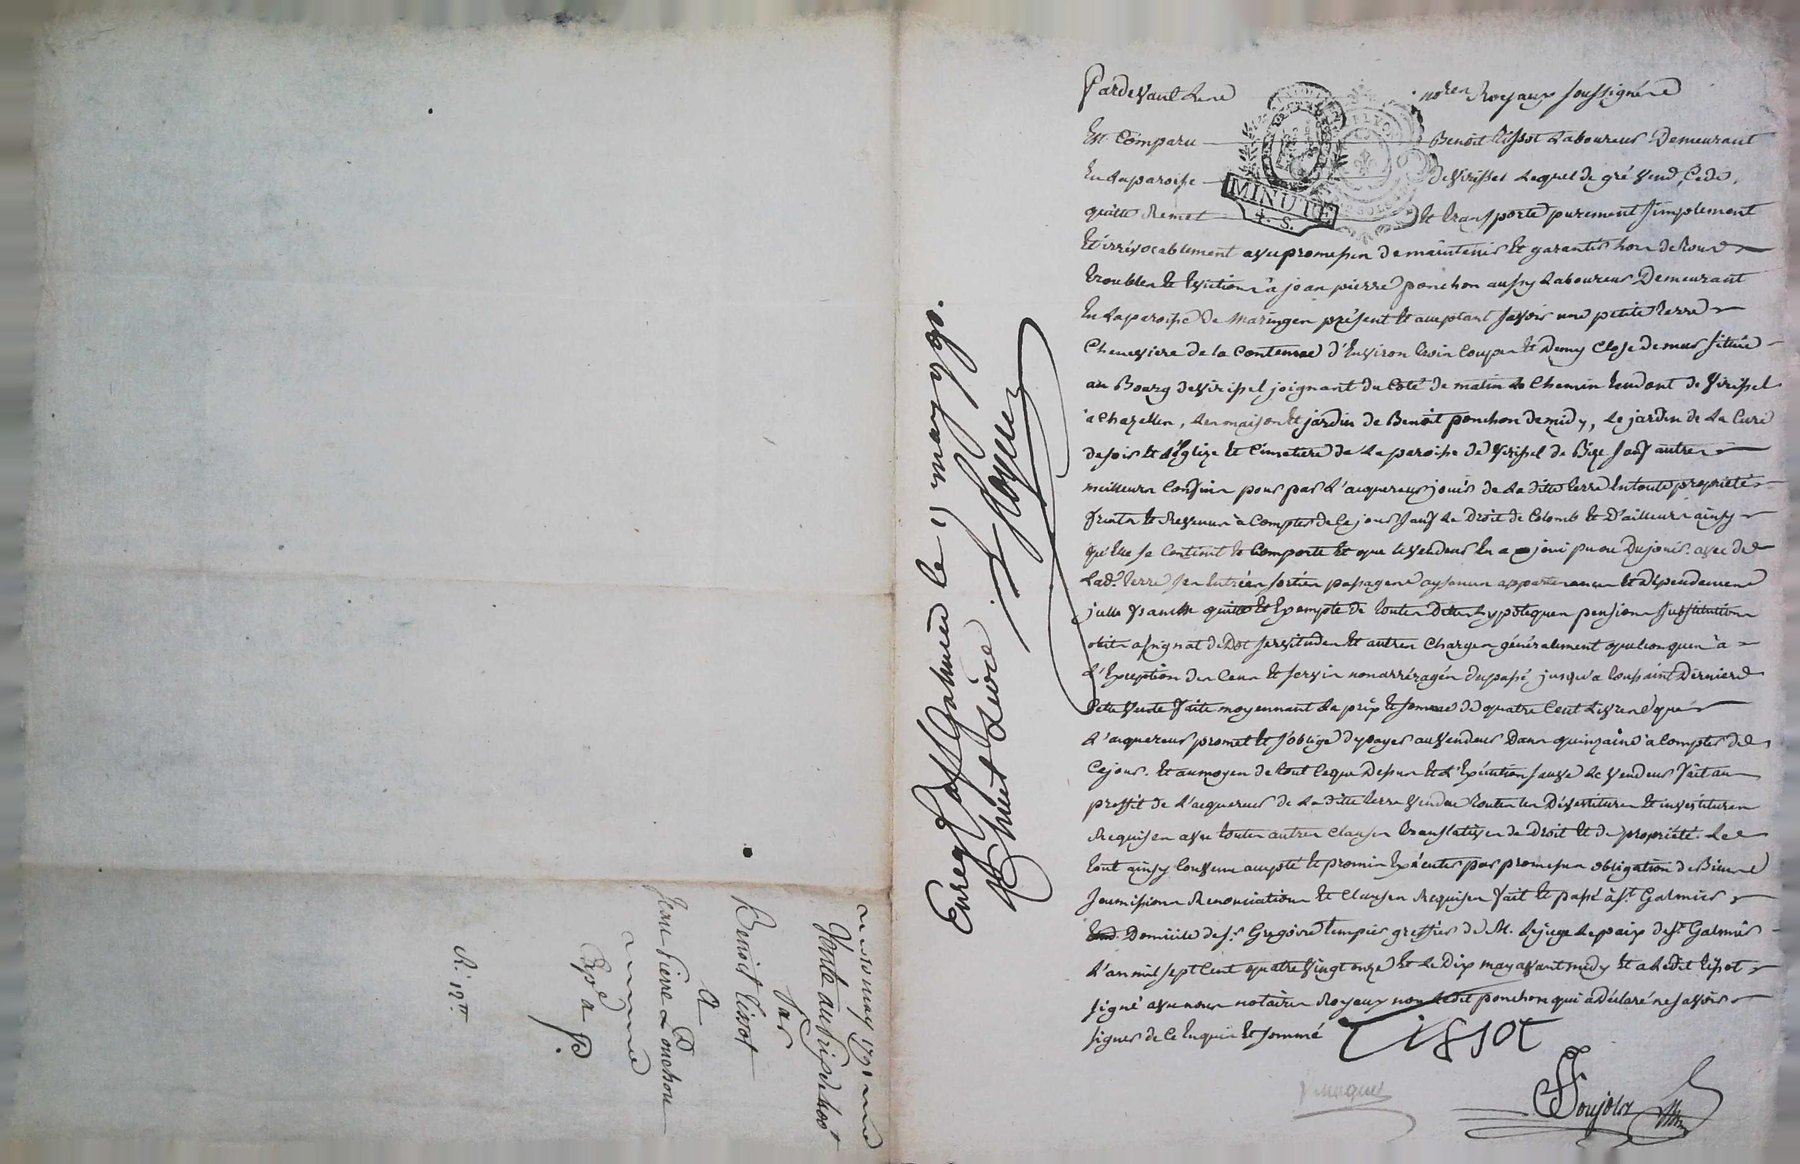 Pardevant Lené noren Royaux soussignéné
Est Comparu Benoit Tissot Laboureur Demeurant
En Laparoisse deVirissel Lequel de gré vend, Cede,
quitte Remet Et transporte purement simplement
Et irrévocablement avec promessen de maintenir Et garantir hor de tout
troublen Et Eviction à jean pierre ponchon aussy Laboureur Demeurant
En Laparoisse de Maringen présent Et acceptant savoir une petite terre
Cheneviere de la Contenue d'Environ trois Coupen Et Demy Close de mur située
au Bourg deVirissel joignant du Coté de matin Le Chemin tendant de Virissel
à Chazellen, Len maison Et jardin de Benoit ponchon de midy, Le jardin de La Cure
desoir Et L'église Et Cimetiere de La paroisse de Virissel de Bize sauf autren
meilleurn Confin pour par L'aquereur jouir de La ditte terre En toute propriété
fruitn Et Revenun à Compter de Ce jour sauf Le Droit de Colomb Et D'ailleurn ainsy
qu'elle se Contient Et Comporte Et que Le vendeur En a joui pu ou Du jouir. avec de
Lade. terre sen Entréen sortien passagen aysancen appartenancen Et dépendancen
jcelle franche quitte Et Exempte de touten Detten hypotequen pension substitution
obitn assignat de Dot servituden Et autren Chargen généralement quelconquen à
L'Exception den Cenn Et servin non arréragén du passé jusqu'à toussaint Derniere
Cette vente faite moyennant La prix Et somme de quatre Cent Livren que
L'aquereur promet Et s'oblige d'ypayer au Vendeur Dann quinzaine à Compter de
Cejour. Et au moyen de tout Ceque Dessun Et L'Exécution sauve Le vendeur fait au
proffit de L'aquereur de La ditte terre Vendue touten len Dévestituren Et investituren
Requisen avec touten autren Clausen translativen de Droit Et de propriété. Le
tout ainsy Convenu accepté Et promin Exécuter par promessen obligation de Bienn
soumission Renonciation Et Clausen Requisen fait Et passé à St. Galmier
Domicile de Sr. Gregoire tempier greffier de M. Lejuge Depaix de St. Galmier
L'an mil sept Cent quatre vingt onze Et Le Dix may avant midy Et a Ledit tissot
signé avec noun notairen Royaux non Ledit ponchon qui a Déclaré ne savoir
signer de Ce Enquin Et sommé Tissot
MINUTE
4. S.
Enreg. à St Galmier le 13 may 1790.
Rt. huit Livre
10 may 1791
Vente au Prix de 400 tt
Par
Benoit Tissot
A
Jean Pierre Ponchon
Expd. a P.
R. 12 tt